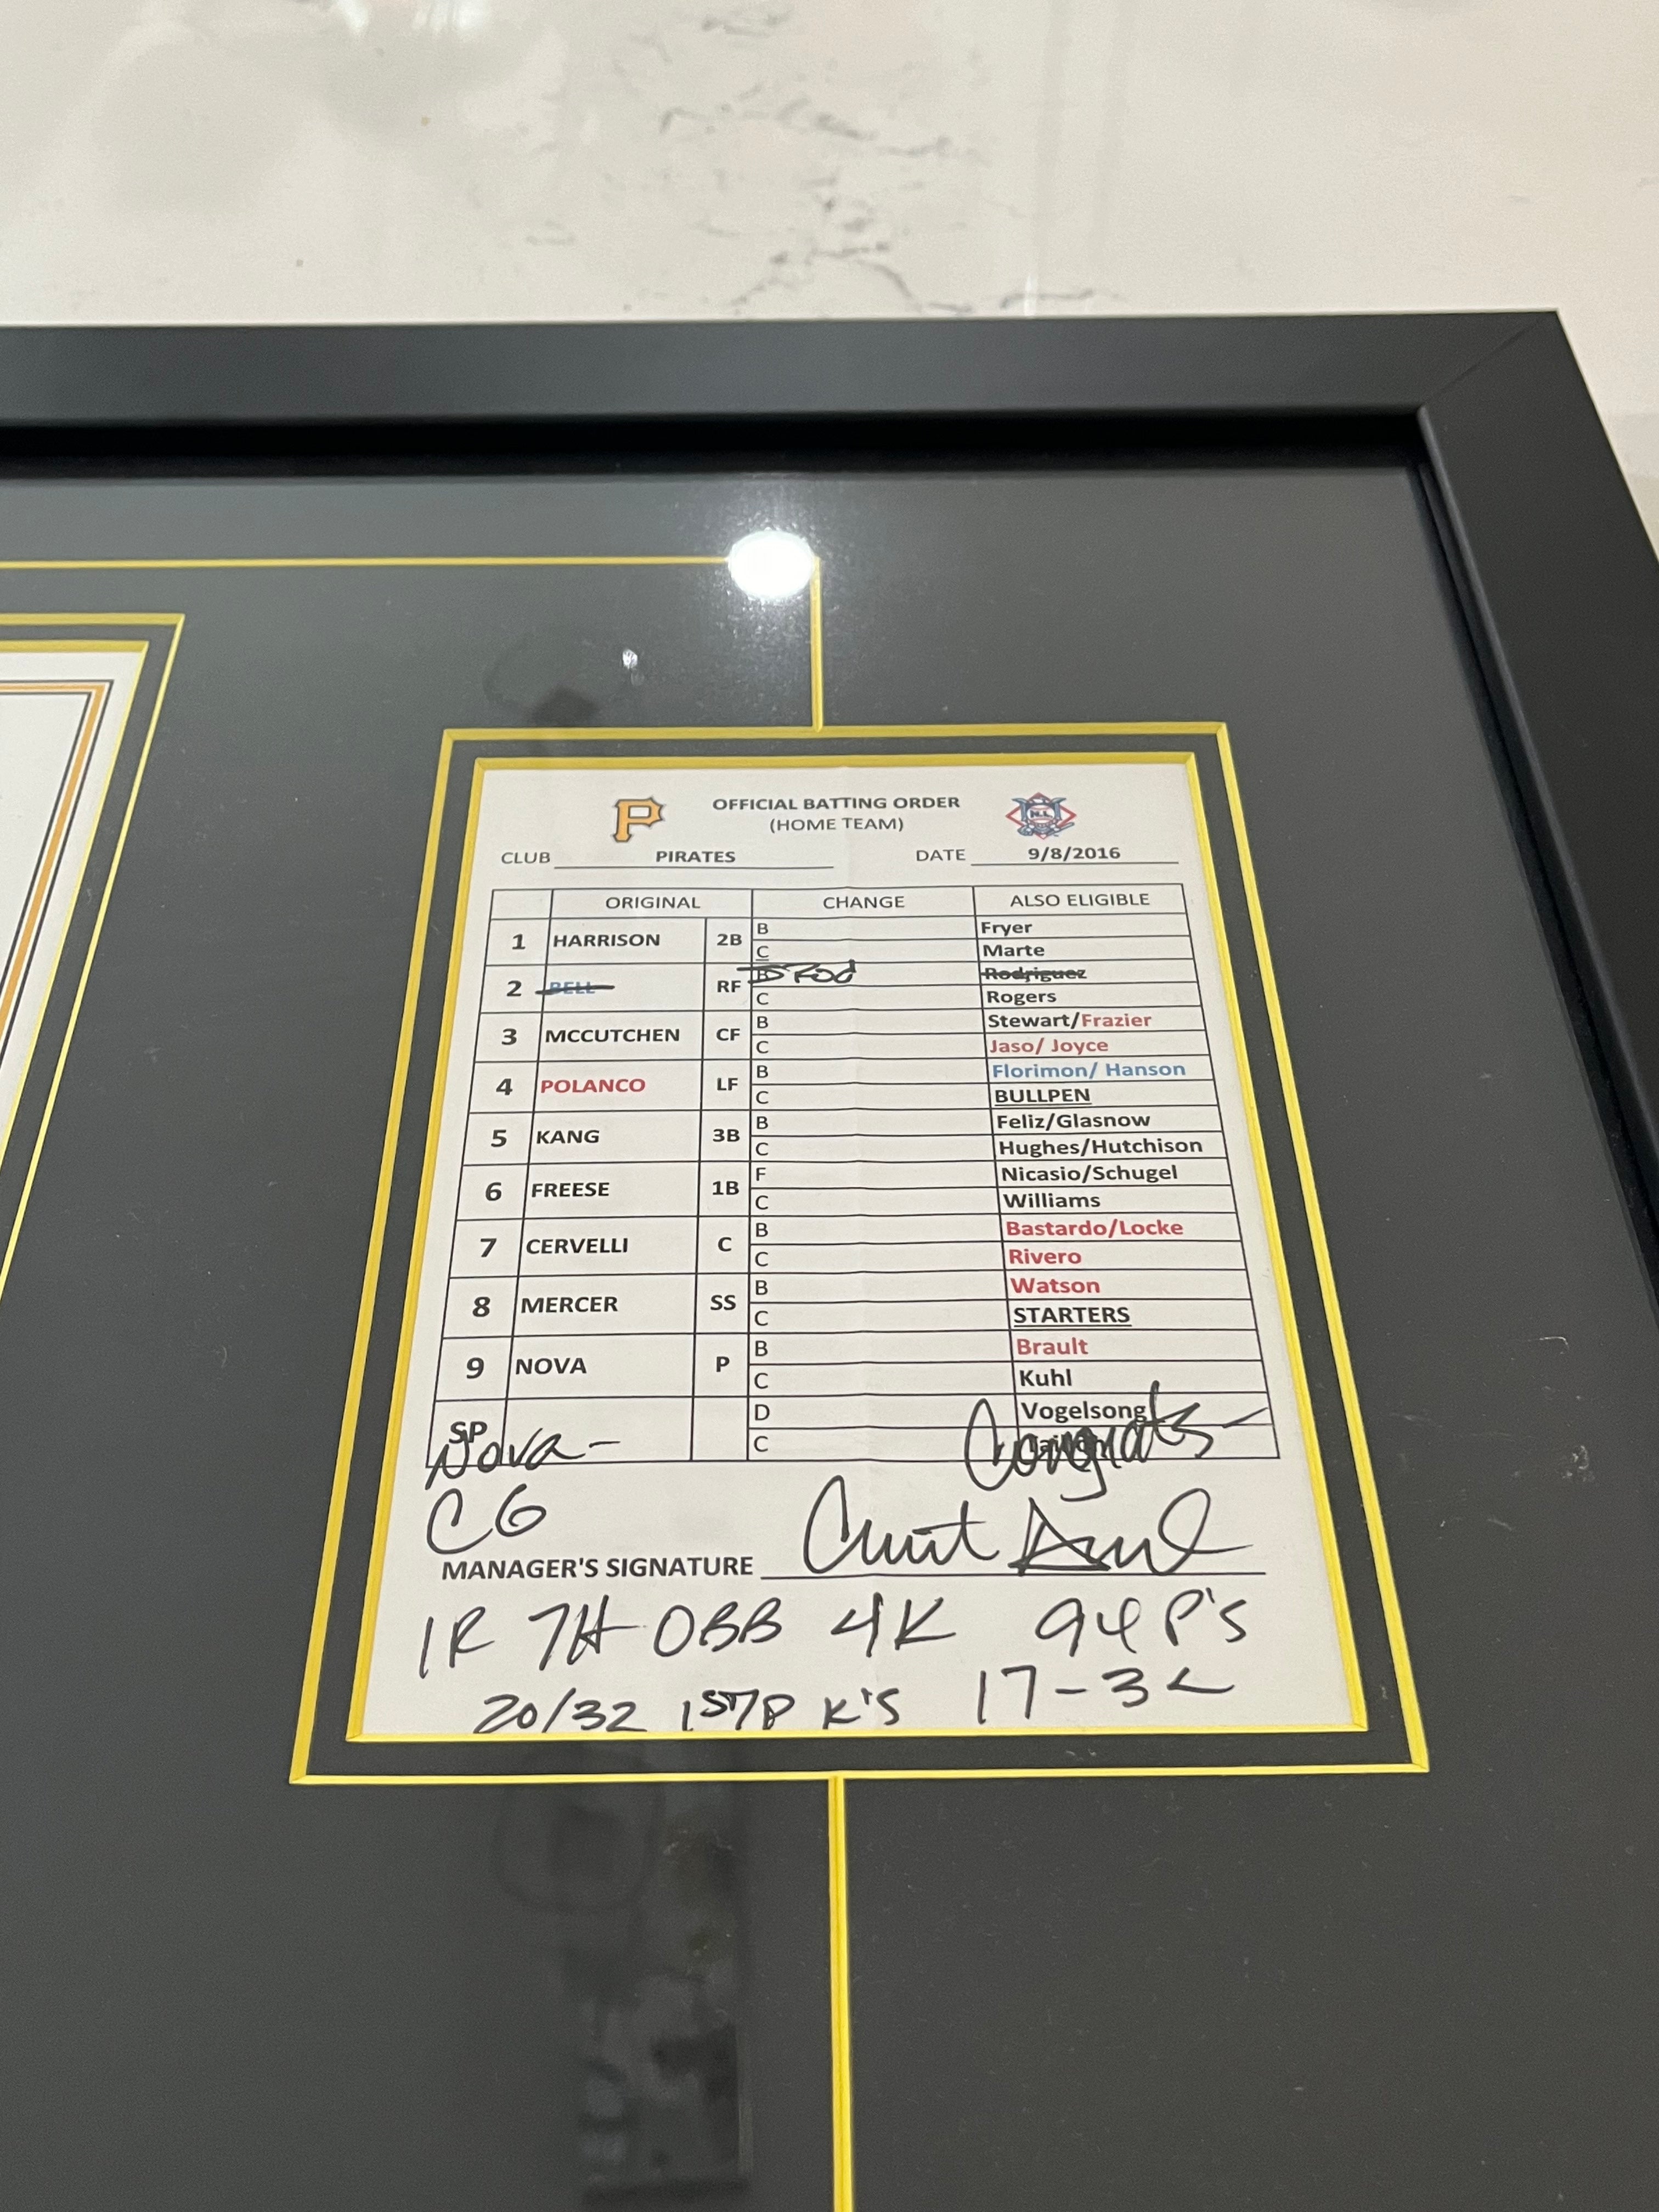 P OFFICIAL BATTING ORDER N.L.
(HOME TEAM)
CLUB PIRATES DATE 9/8/2016
ORIGINAL CHANGE ALSO ELIGIBLE
1 HARRISON 2B B Fryer
C Marte
2 BELL RF B Rod Rodriguez
C Rogers
3 MCCUTCHEN CF B Stewart/Frazier
C Jaso/ Joyce
4 POLANCO LF B Florimon/ Hanson
C BULLPEN
5 KANG 3B B Feliz/Glasnow
C Hughes/Hutchison
6 FREESE 1B F Nicasio/Schugel
C Williams
7 CERVELLI C B Bastardo/Locke
C Rivero
8 MERCER SS B Watson
C STARTERS
9 NOVA P B Brault
C Kuhl
SP D Vogelsong
C
Nova - Congrats -
CG
MANAGER'S SIGNATURE
1R 7H 0BB 4K 94 P's
20/32 1STP K'S 17-3